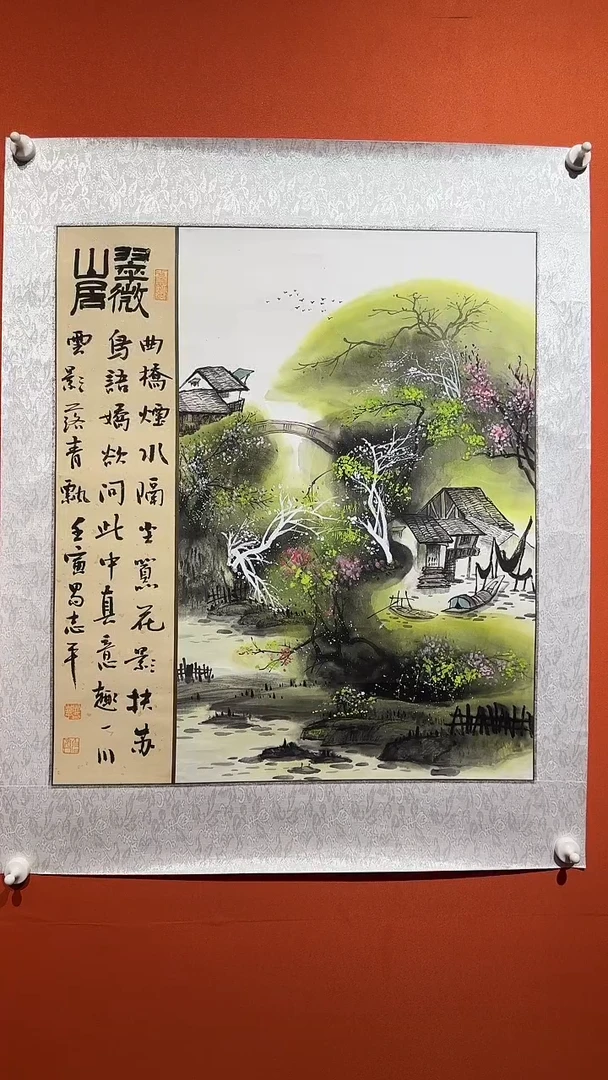 翠微
山居
曲橋煙水隔尘寰花影扶苏
鳥語嬌欲問此中真意趣一川
雲影落青 壬寅 志平